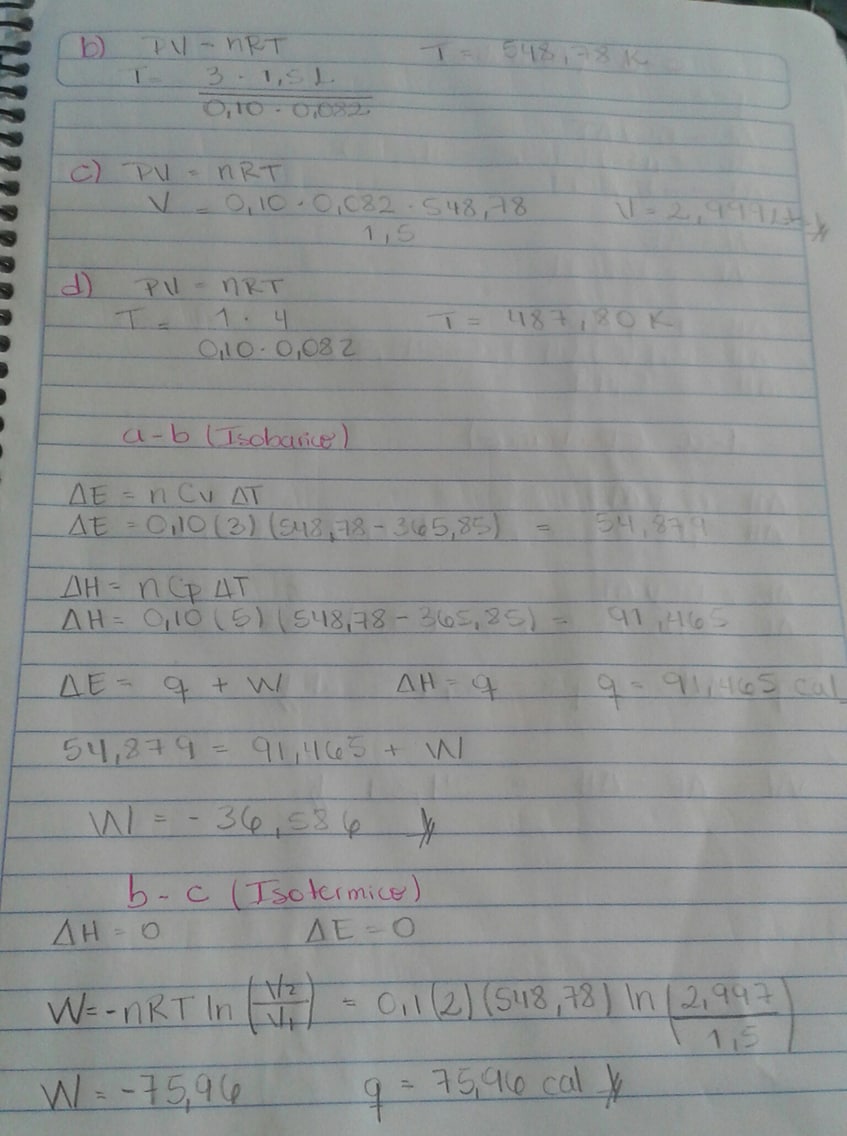 b) PV = nRT T = 548,78 K
T = 3 · 1,5 L
0,10 · 0,082
c) PV = nRT
V = 0,10 · 0,082 · 548,78
1,5
d) PV = nRT
T = 1 · 4 T = 487,80 K
0,10 · 0,082
a-b (Isobarico)
ΔE = n Cv ΔT
ΔE = 0,10 (3) (548,78 - 365,85) = 54,879
ΔH = n Cp ΔT
ΔH = 0,10 (5) (548,78 - 365,85) = 91,465
ΔE = q + W ΔH = q q = 91,465 cal
54,879 = 91,465 + W
W = - 36,586
b - c (Isotermico)
ΔH = 0 ΔE = 0
W = -nRT ln (V2/V1) = 0,1 (2) (548,78) ln (2,997/1,5)
W = -75,96 q = 75,96 cal